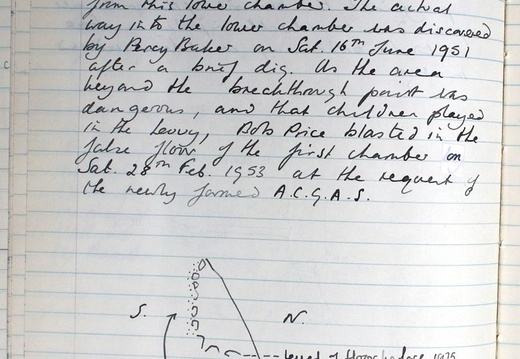 from this lower chamber. The actual
way into the lower chamber was discovered
by Percy Baker on Sat. 16th June 1951
after a brief dig. As the area
beyond the breakthrough point was
dangerous, and that children played
in the , Bob Price blasted in the
false floor of the first chamber on
Sat. 28th Feb. 1953 at the request of
the newly formed A.C.G.A.S.
S.
N.
level of floor before 1975